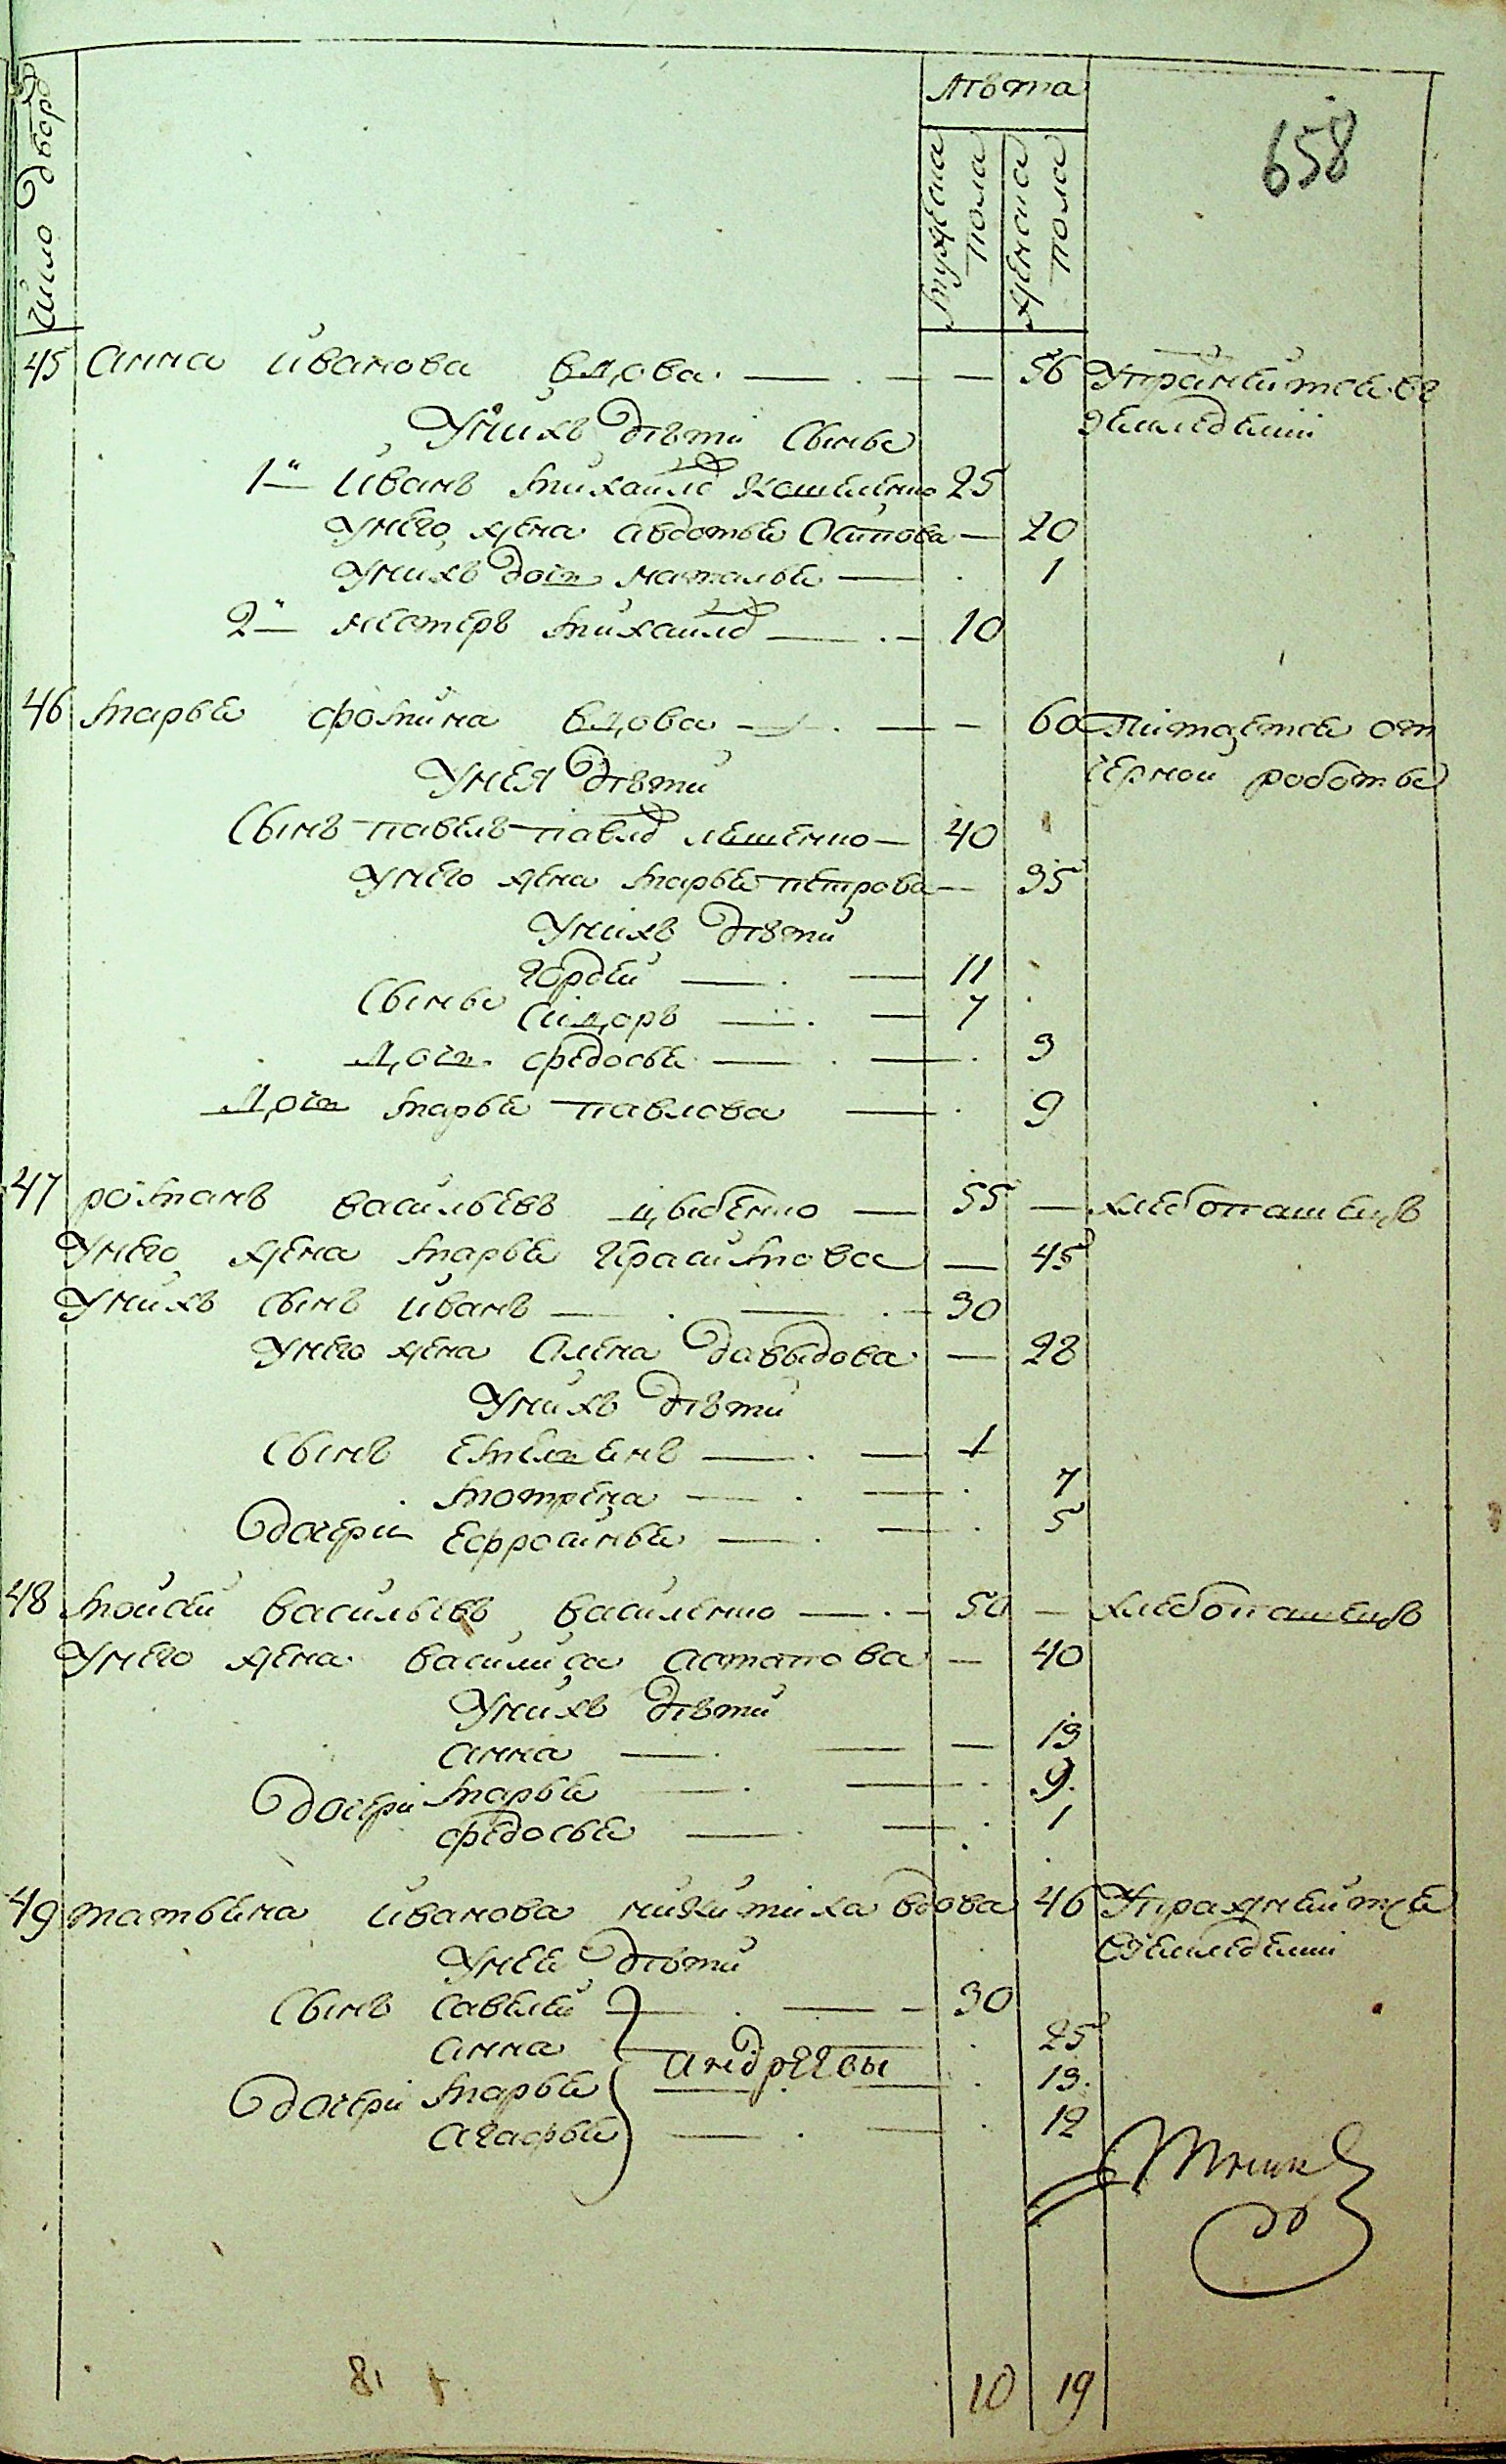 658
Число двор
Лѣта
мужеска пола
женска пола
45 Анна Иванова вдова 56 Упражняется въ
земледелии
У нихъ дѣти Сынъе
1й Иванъ Михайлов 25
У него жена Авдотья Осипова 20
У нихъ дочь Наталья 1
2й Нестеръ Михайлов 10
46 Марья Фомина вдова 60 Питается от
черной работы
У нея дѣти
Сынъ Павелъ Павлов Лященко 40
У него жена Марья Петрова 35
У нихъ дѣти
Гордей 11
Сынъе Сидоръ 7
Дочь Федосья 3
Дочь Марья Павлова 9
47 Романъ Васильевъ Цыбенко 55 хлебопашецъ
У него жена Марья Герасимова 45
У нихъ сынъ Иванъ 30
У него жена Алена Давыдова 28
У нихъ дѣти
Сынъ Емельянъ 1
Мотрена 7
Дочери Ефросинья 5
48 Моисей Васильевъ Василенко 50 хлебопашецъ
У него жена Василиса Астапова 40
У нихъ дѣти
Анна 13
Дочери Марья 9
Федосья 1
49 Татьяна Иванова Микитиха вдова 46 Упражняется
в земледелии
У нее дѣти
Сынъ Савелий 30
Анна 25
Андреевы
Дочери Марья 13
Агафья 12
10 19